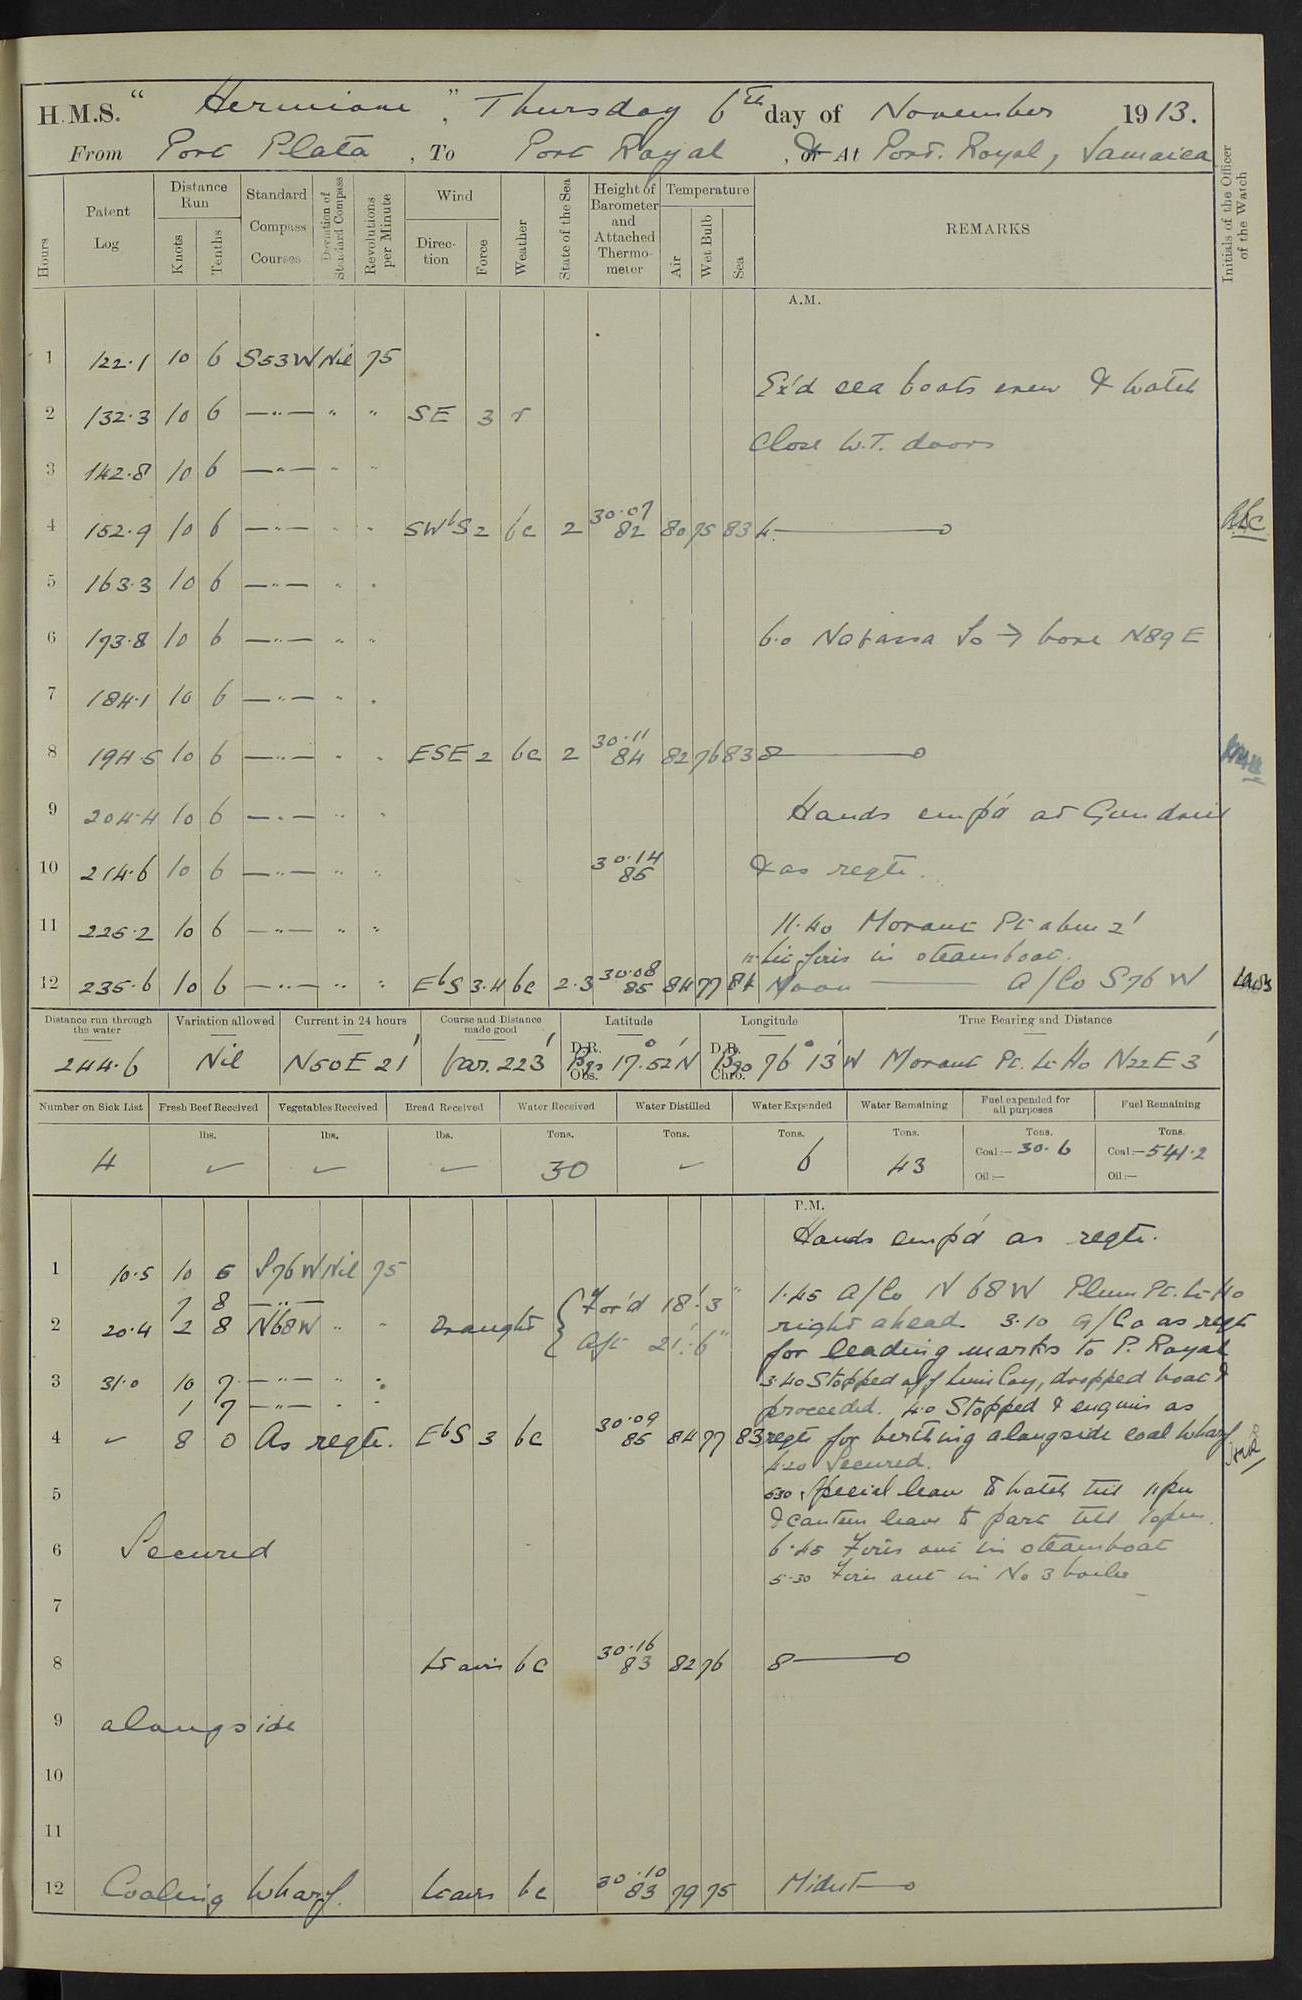 H.M.S. "Hermione", Thursday 6th day of November 1913.
From Port Plata, To Port Royal, or At Port Royal, Jamaica
Hours
Patent Log
Distance Run
Knots
Tenths
Standard Compass Courses
Deviation of Standard Compass
Revolutions per Minute
Wind
Direction
Force
Weather
State of the Sea
Height of Barometer and Attached Thermometer
Temperature
Air
Wet Bulb
Sea
REMARKS
Initials of the Officer of the Watch
A.M.
1 122.1 10 6 S53W Nil 75
Ex'd sea boats crew & watch
2 132.3 10 6 —"— " " SE 3 r
Close W.T. doors
3 142.8 10 6 —"— " "
4 152.9 10 6 —"— " " SWbS 2 bc 2 30.07 82 80 75 83 4
5 163.3 10 6 —"— " "
6 173.8 10 6 —"— " " 6.0 Navassa Io → bore N89E
7 184.1 10 6 —"— " "
8 194.5 10 6 —"— " " ESE 2 bc 2 30.11 84 82 76 83 8
9 204.4 10 6 —"— " " Hands emp'd at Gun drill
10 214.6 10 6 —"— " " 30.14 85 & as reqte.
11 225.2 10 6 —"— " " 11.40 Morant Pt abm 2'
lit fires in steamboat.
12 235.6 10 6 —"— " " EbS 3.4 bc 2.3 30.08 85 84 77 84 Noon — A/Co S76W
Distance run through the water
Variation allowed
Current in 24 hours
Course and Distance made good
Latitude
Longitude
True Bearing and Distance
244.6 Nil N50E 21' Var. 223' D.R. Obs. Bgs 17°.52'N D.R. Chro. Bgs 76°13'W Morant Pt. Lt Ho N22E 3'
Number on Sick List
Fresh Beef Received
Vegetables Received
Bread Received
Water Received
Water Distilled
Water Expended
Water Remaining
Fuel expended for all purposes
Fuel Remaining
lbs. lbs. lbs. Tons. Tons. Tons. Tons. Tons. Tons.
4 ✓ ✓ ✓ 30 ✓ 6 43 Coal:— 30.6 Coal:— 541.2
Oil:— Oil:—
P.M.
Hands emp'd as reqte.
1 10.5 10 5 S76W Nil 75
7 8 —"— 1.45 A/Co N68W Plum Pt. Lt Ho
2 20.4 2 8 N68W " " Draught { For'd 18'.3" Aft 21'.6" right ahead. 3.10 A/Co as reqte
for leading marks to P. Royal
3 31.0 10 7 —"— " " 3.40 Stopped off Cay, dropped boat &
1 7 —"— " " proceeded. 4.0 Stopped & engines as
4 ✓ 8 0 As reqte. EbS 3 bc 30.09 85 84 77 83 reqte for berthing alongside coal wharf
4.20 Secured.
5 5.30 Special leave to watch till 11pm
& canteen leave to part till 10pm.
6 Secured 6.45 Fires out in steamboat
5.30 Fires out in No 3 boiler
7
8 Lt airs bc 30.16 83 82 76 8
9 alongside
10
11
12 Coaling Wharf. Lt airs bc 30.10 83 79 75 Midnt